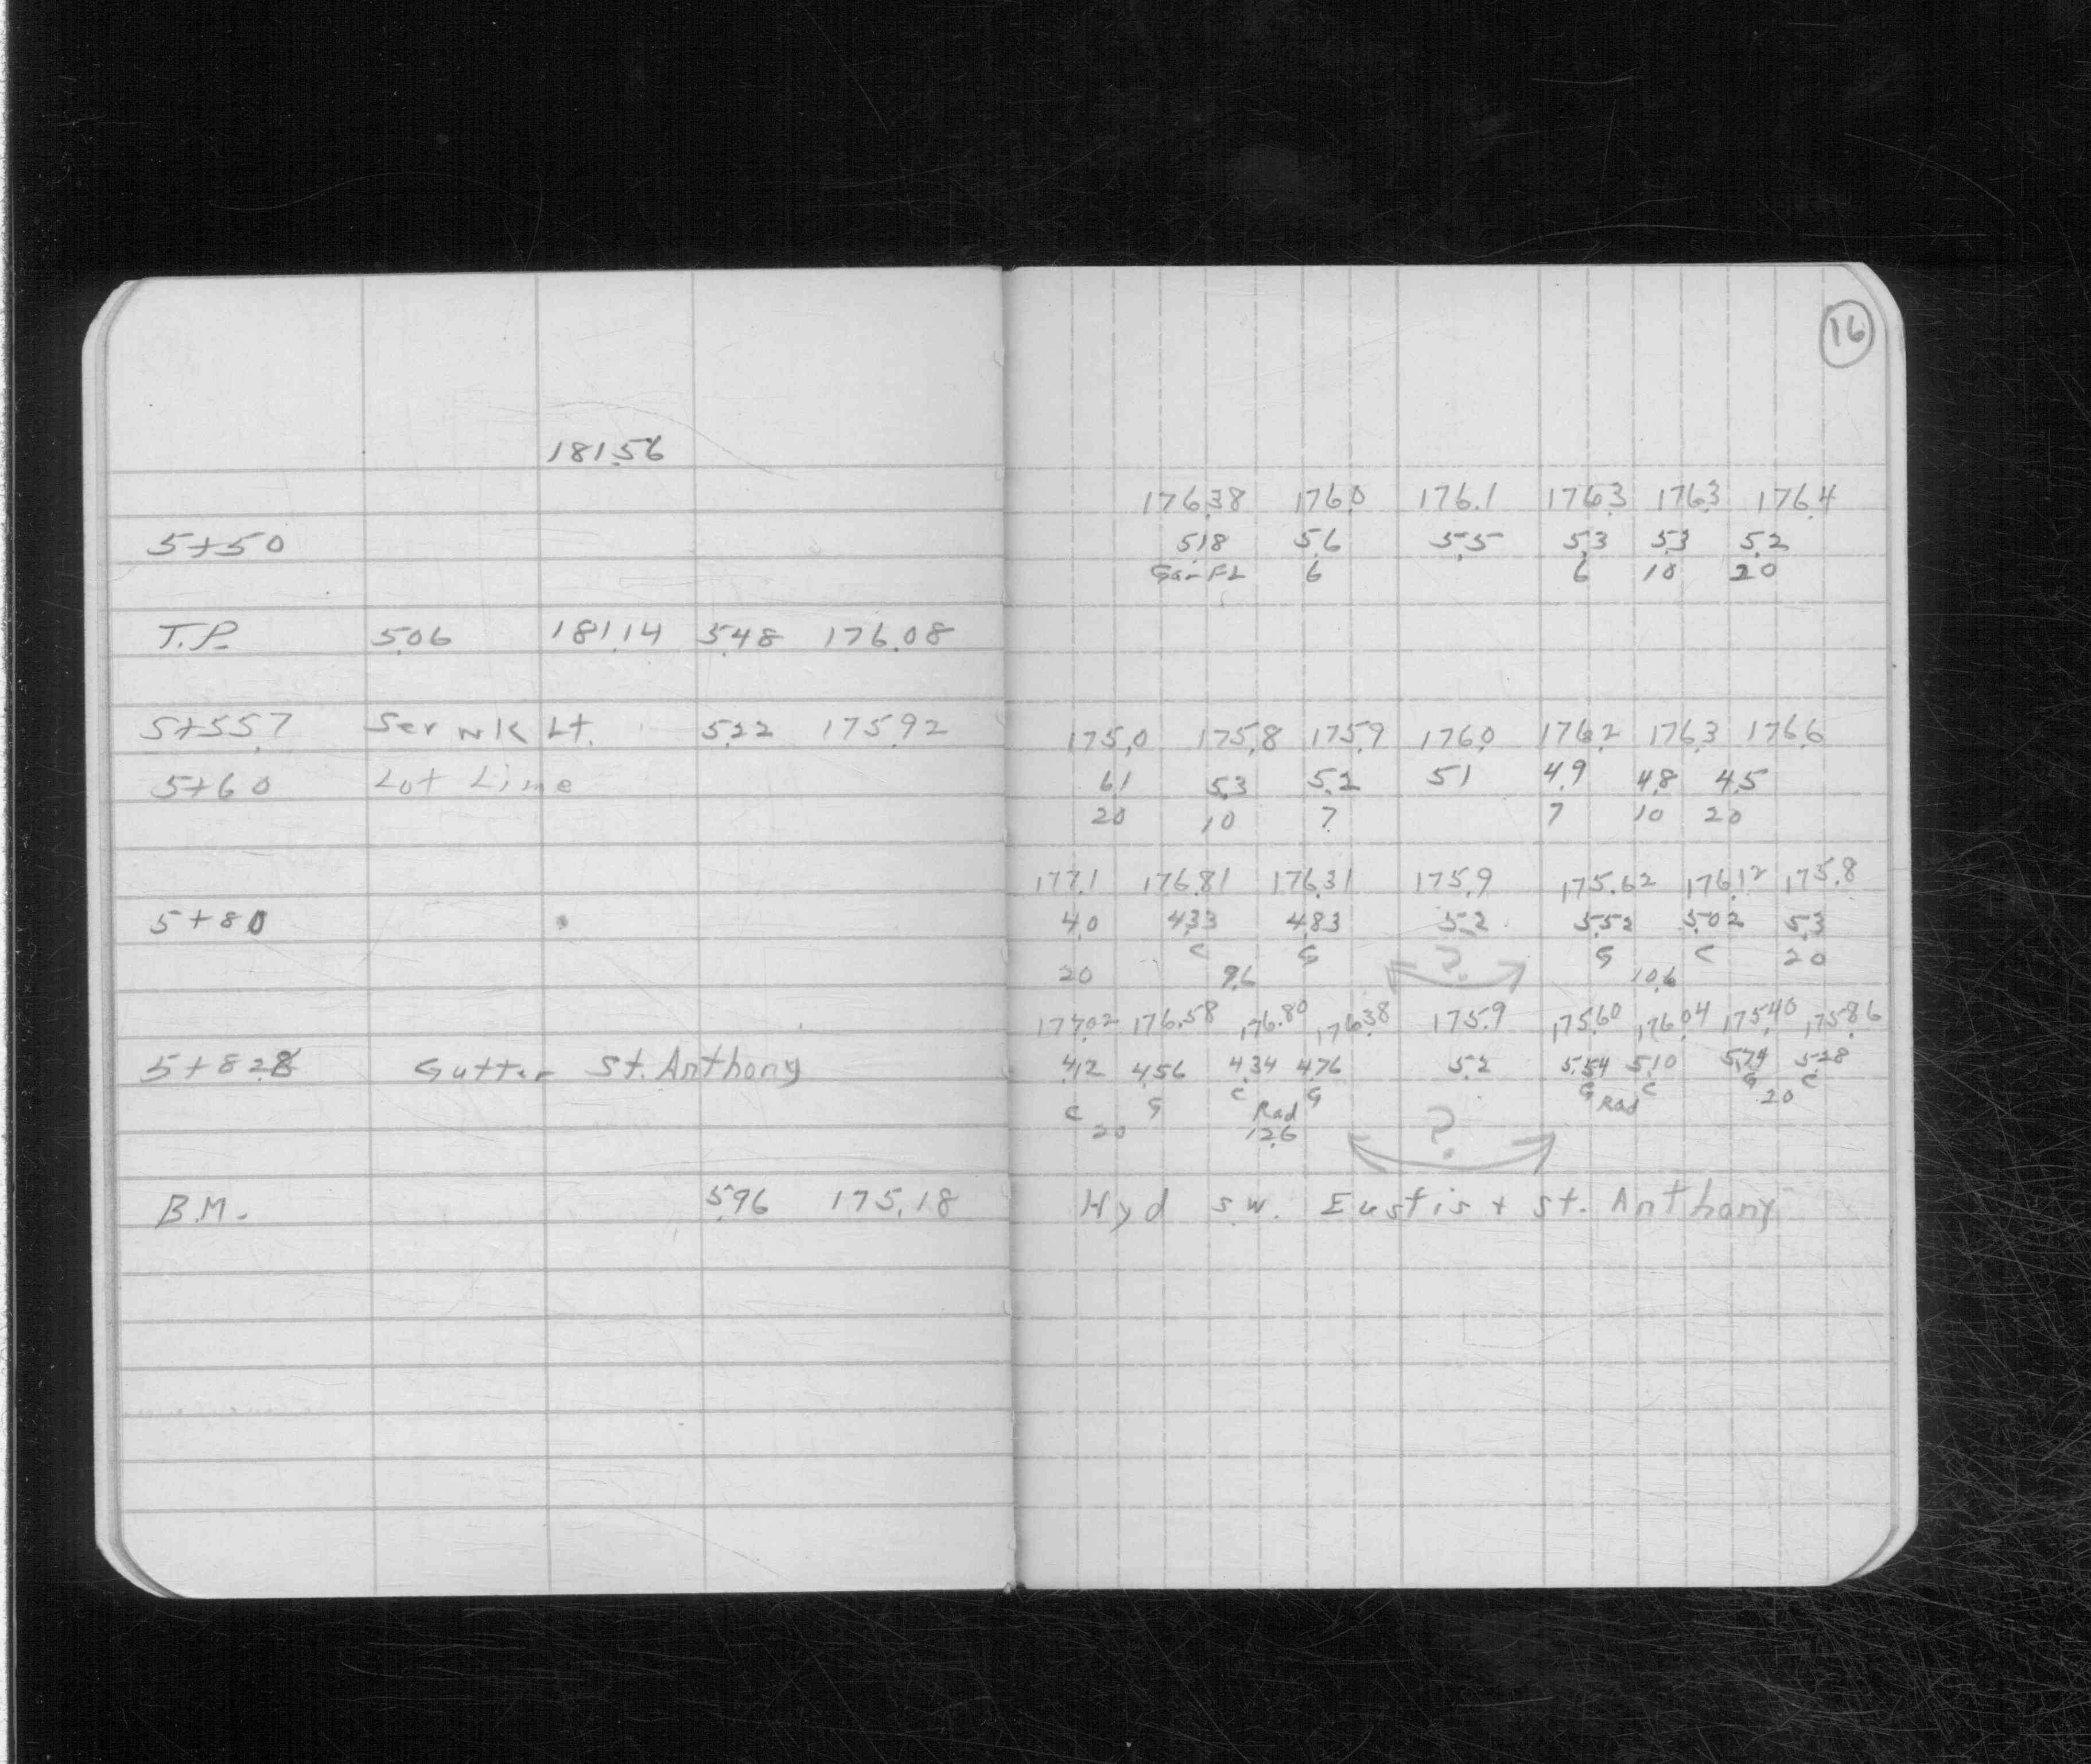 16
181.56
176.38 176.0 176.1 176.3 176.3 176.4
5+50 5.18 5.6 5.5 5.3 5.3 5.2
Gar FL 6 6 10 20
T.P. 5.06 181.14 5.48 176.08
5+55.7 Ser Wk Lt. 5.22 175.92 175.0 175.8 175.9 176.0 176.2 176.3 176.6
5+60 Lot Line 6.1 5.3 5.2 5.1 4.9 4.8 4.5
20 10 7 7 10 20
177.1 176.81 176.31 175.9 175.62 176.12 175.8
5+80 4.0 4.33 4.83 5.2 5.52 5.02 5.3
C G ? G C 20
20 9.6 10.6
177.02 176.58 176.80 176.38 175.9 175.60 176.04 175.40 175.86
5+82.8 Gutter St. Anthony 4.12 4.56 4.34 4.76 5.2 5.54 5.10 5.74 5.28
C G C Rad G G Rad C G 20 C
20 12.6 ?
B.M. 5.96 175.18 Hyd S.W. Eustis + St. Anthony